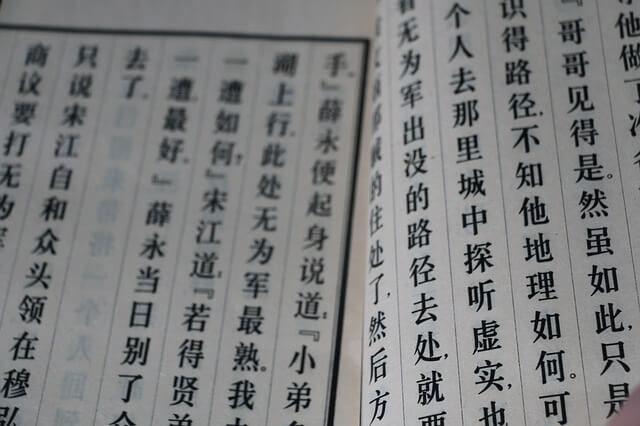 他做了
『哥哥见得是。然虽如此,只是
识得路径,不知他地理如何。可
个人去那里城中探听虚实,也
看无为军出没的路径去处,就要
的住处了,然后方
手。』薛永便起身说道:『小弟多
湖上行。此处无为军最熟。我去
一遭如何?』宋江道:『若得贤弟
一遭最好。』薛永当日别了众
去了。
只说宋江自和众头领在穆弘
商议要打无为军